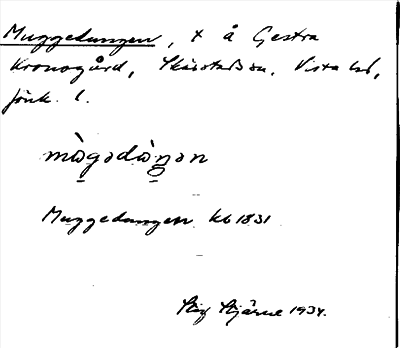 Muggedungen, t å Gestra
Kronogård, Skärstads sn, Vista hd,
Jönk. l.
mὼgədὼŋən
Muggedungen kb 1831
Stig Stjärne 1934.